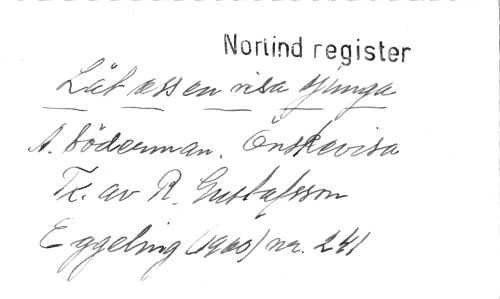 Norlind register
Låt oss en visa sjunga
A. Söderman. Önskevisa
Tr. av R. Gustafsson
Eggeling (1900) nr. 241